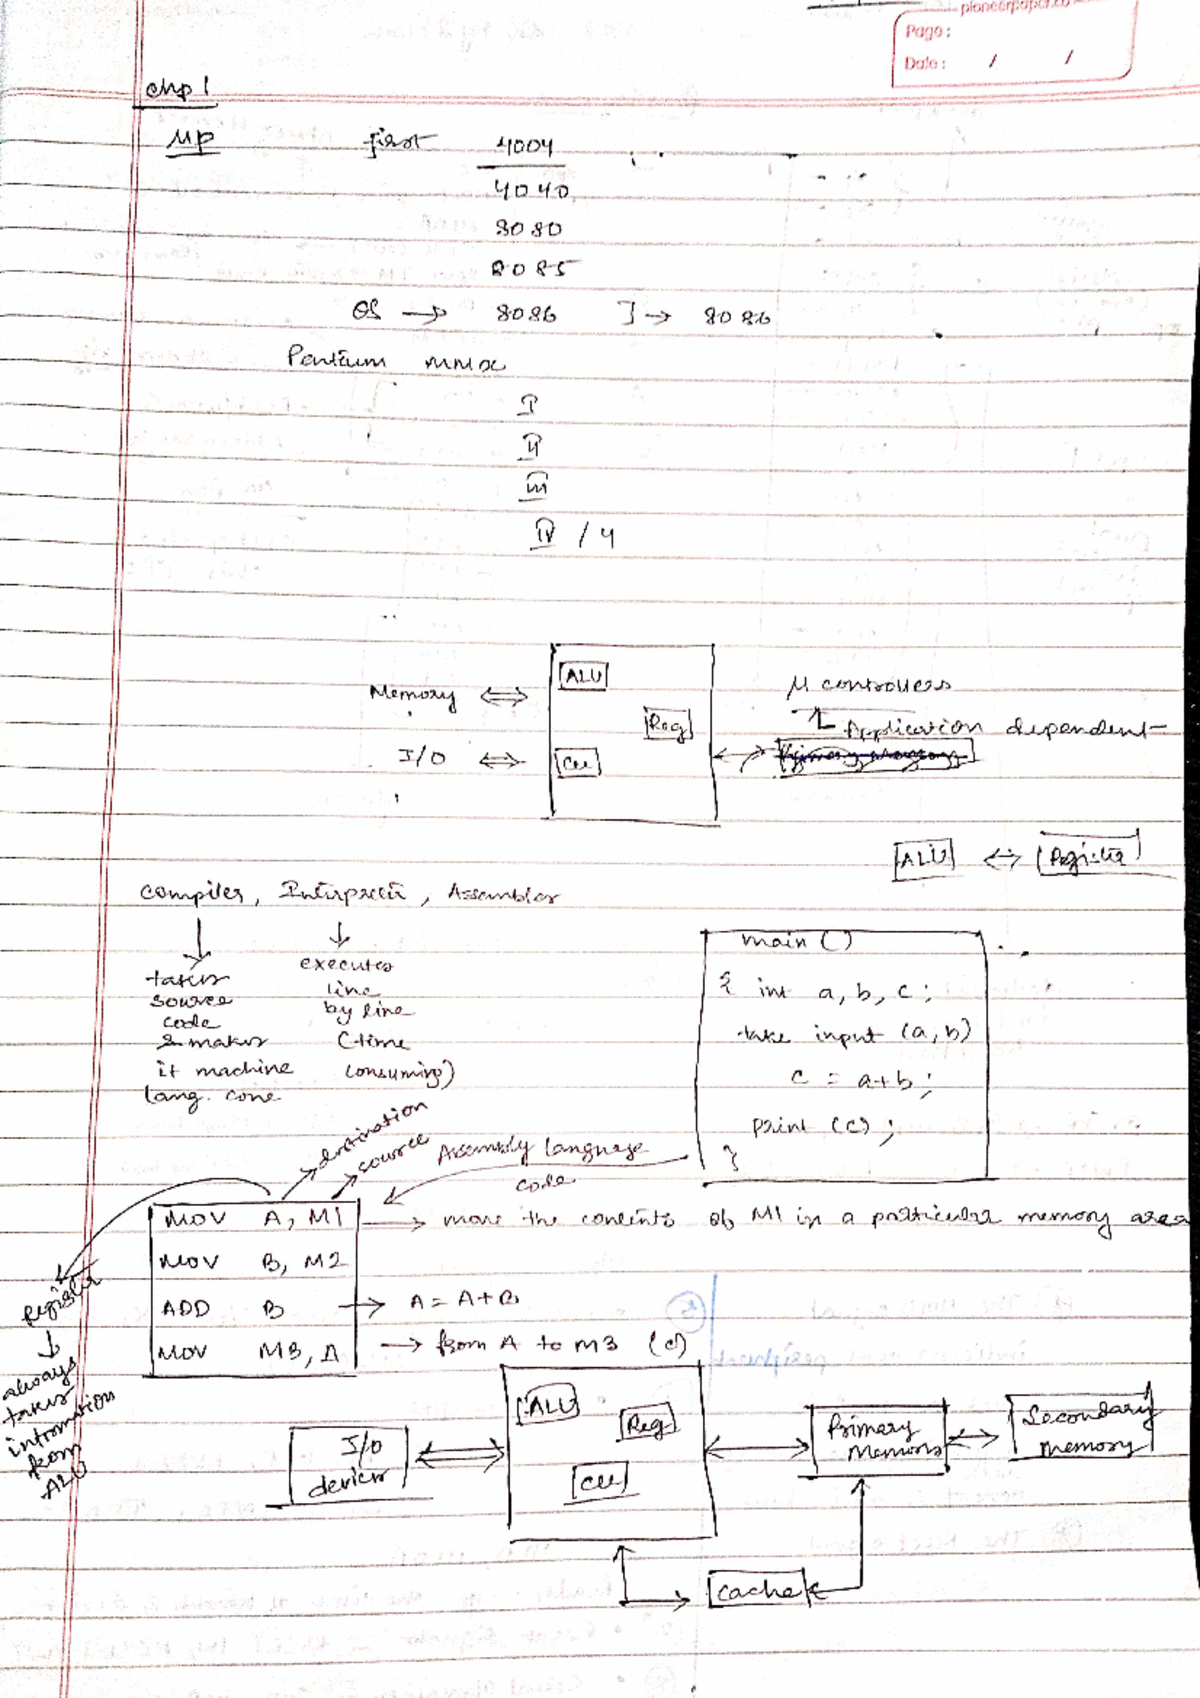 pioneerpaper.co
Page:
Date: / /
chp 1
MP first 4004
4040
8080
8085
OS → 8086 ] → 8086
Pentium MMX
I
II
III
IV / 4
ALU
Memory ⇔
Reg
I/O ⇔
CU
μ controllers
Application dependent
ALU ⇔ Register
Compiler, Interpreter, Assembler
takes
source
code
& makes
it machine
lang. cone
executes
line
by line
(time
consuming)
main ()
{ int a, b, c;
take input (a, b)
c = a+b;
print (c);
}
destination
source
Assembly language
code
MOV A, M1 → move the contents of M1 in a particular memory area
MOV B, M2
ADD B → A = A+B
MOV M3, A → from A to M3 (c)
Register
↓
always
takes
information
from
ALU
I/O
devices
ALU
Reg
CU
Primary
Memory
Secondary
memory
cache